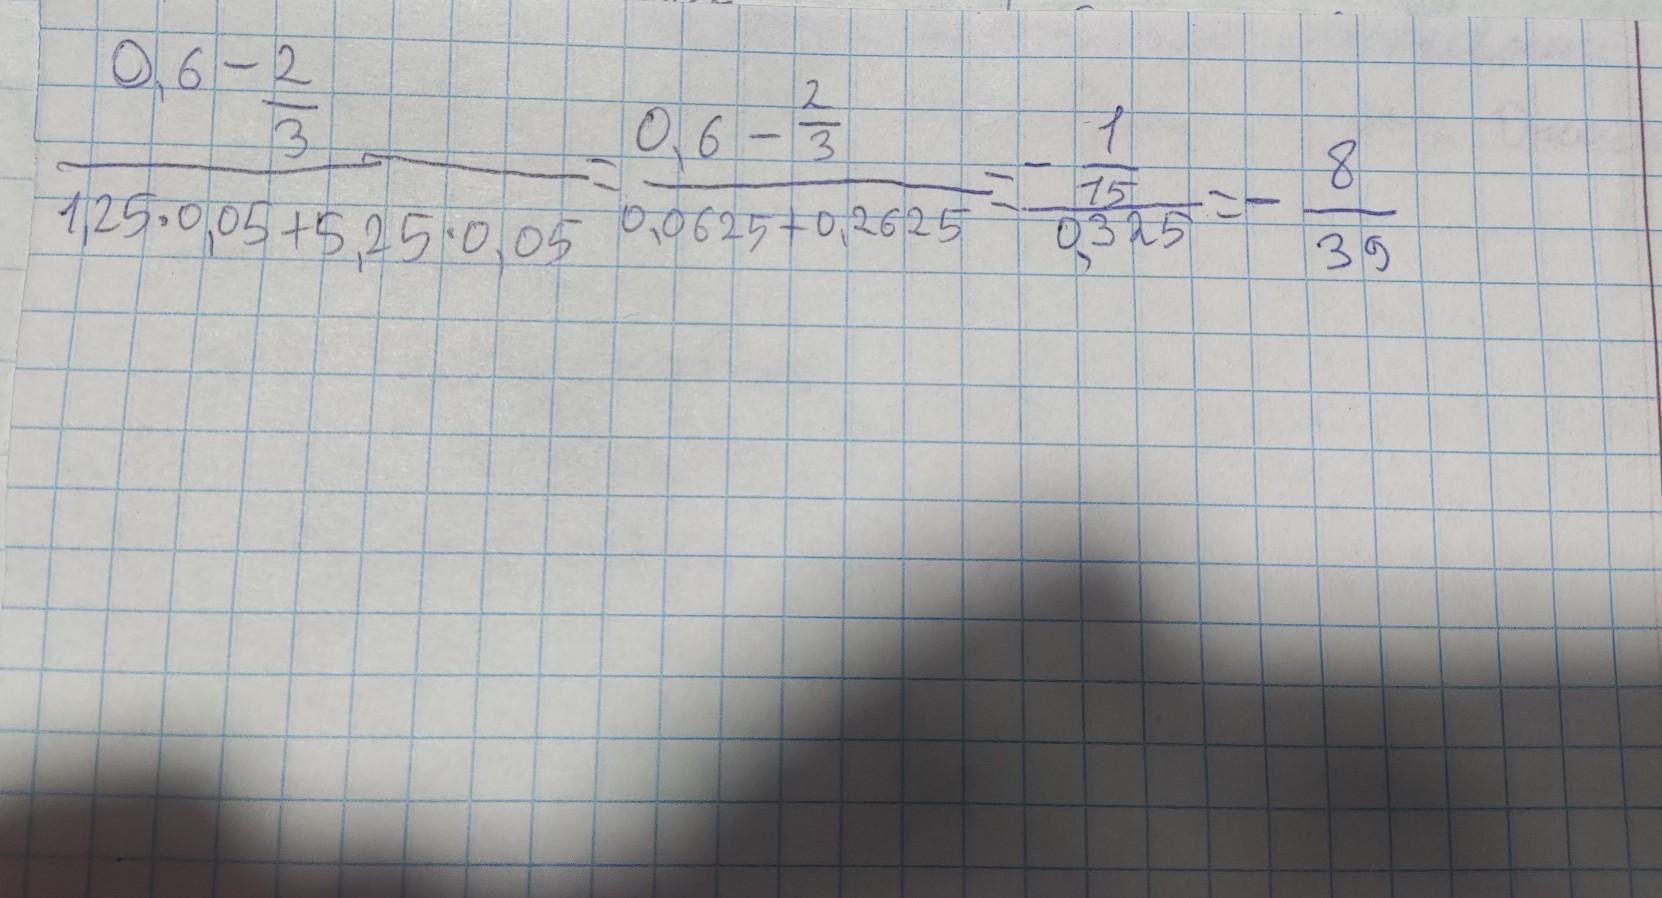 (0,6 - 2/3) / (1,25·0,05+5,25·0,05) = (0,6 - 2/3) / (0,0625+0,2625) = (- 1/15) / 0,325 = - 8/39